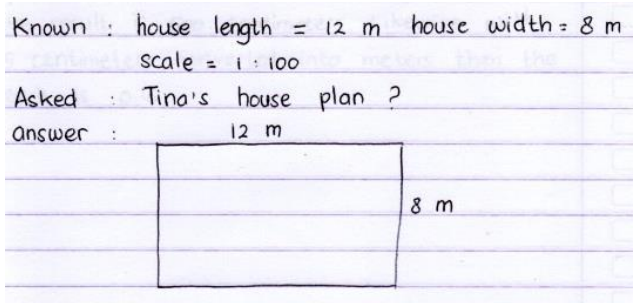 Known : house length = 12 m house width = 8 m
scale = 1 : 100
Asked : Tina's house plan ?
answer :
12 m
8 m